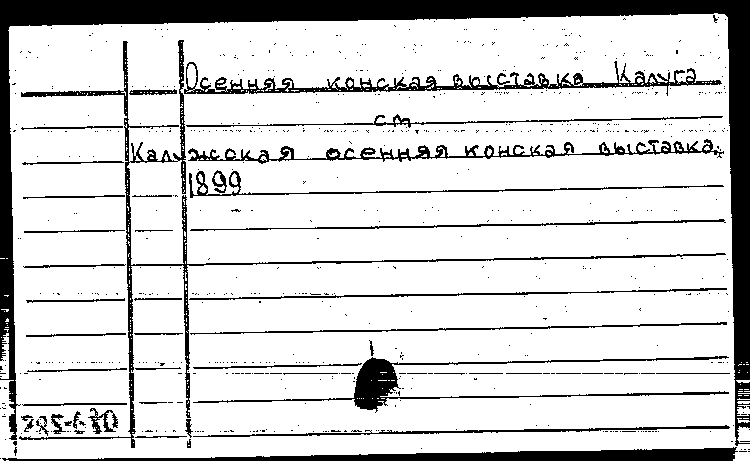 Осенняя конская выставка Калуга
см.
Калужская осенняя конская выставка.
1899